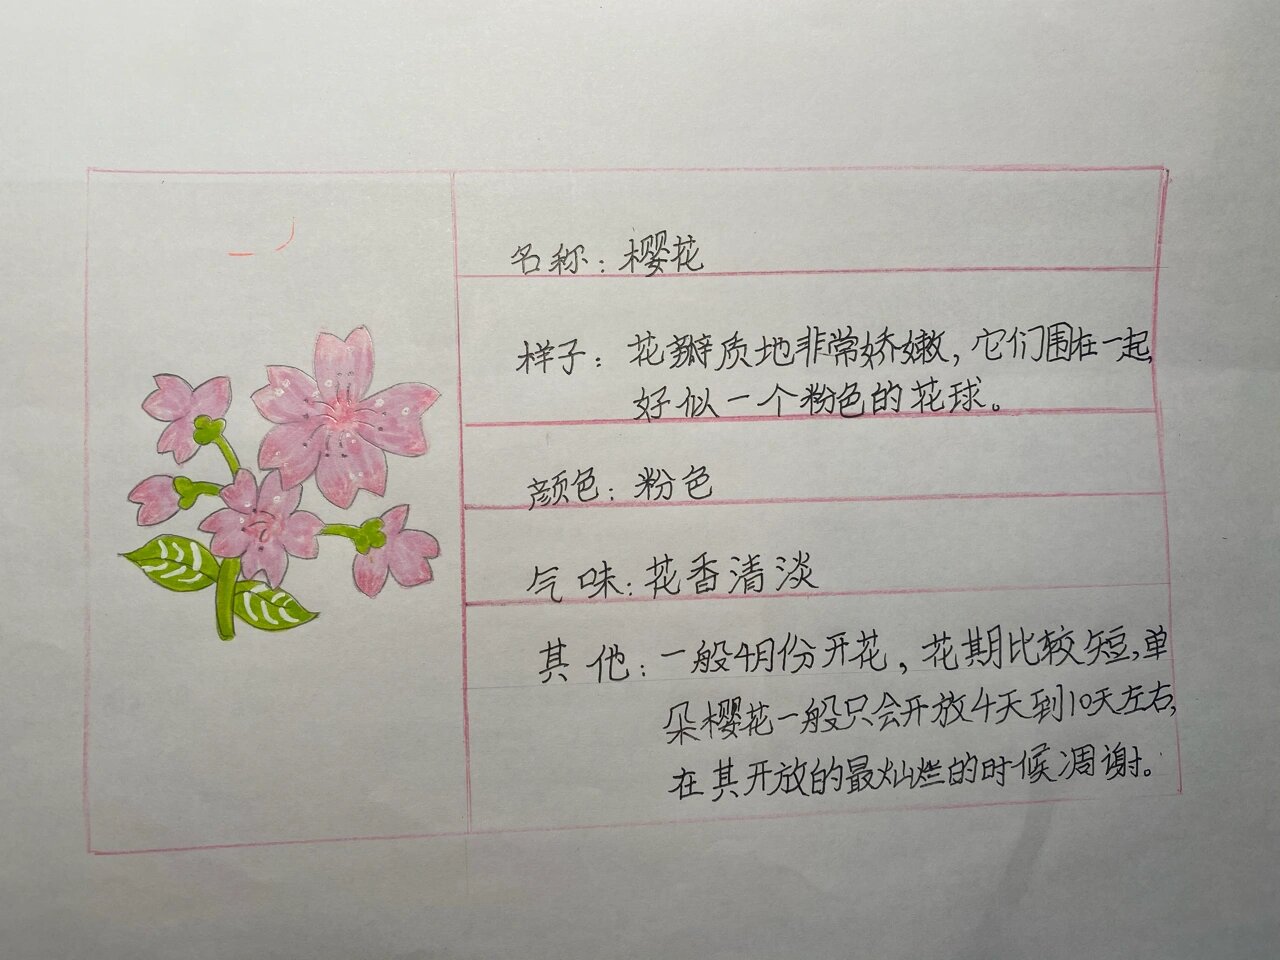 名称：樱花
样子：花瓣质地非常娇嫩，它们围在一起，
好似一个粉色的花球。
颜色：粉色
气味：花香清淡
其他：一般4月份开花，花期比较短，单
朵樱花一般只会开放4天到10天左右，
在其开放的最灿烂的时候凋谢。